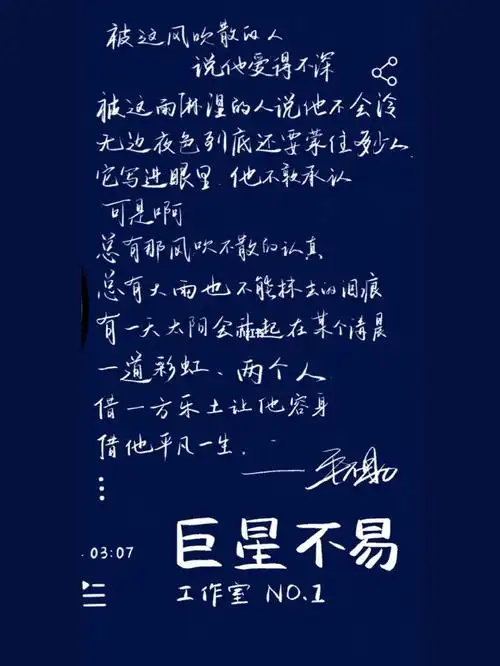 被这风吹散的人
说他爱得不深
被这雨淋湿的人说他不会冷
无边夜色到底还要蒙住多少人
它写进眼里,他不敢承认
可是啊
总有那风吹不散的认真
总有大雨也不能抹去的泪痕
有一天太阳会升起在某个清晨
一道彩虹、两个人
借一方乐土让他容身
借他平凡一生.
——毛不易
03:07
巨星不易
工作室 NO.1